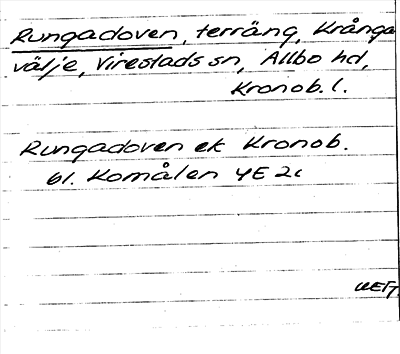 Rungadoven, terräng, Krånga
välje, Virestads sn, Allbo hd,
Kronob. l.
Rungadoven ek Kronob.
61. Komålen 4E 2c